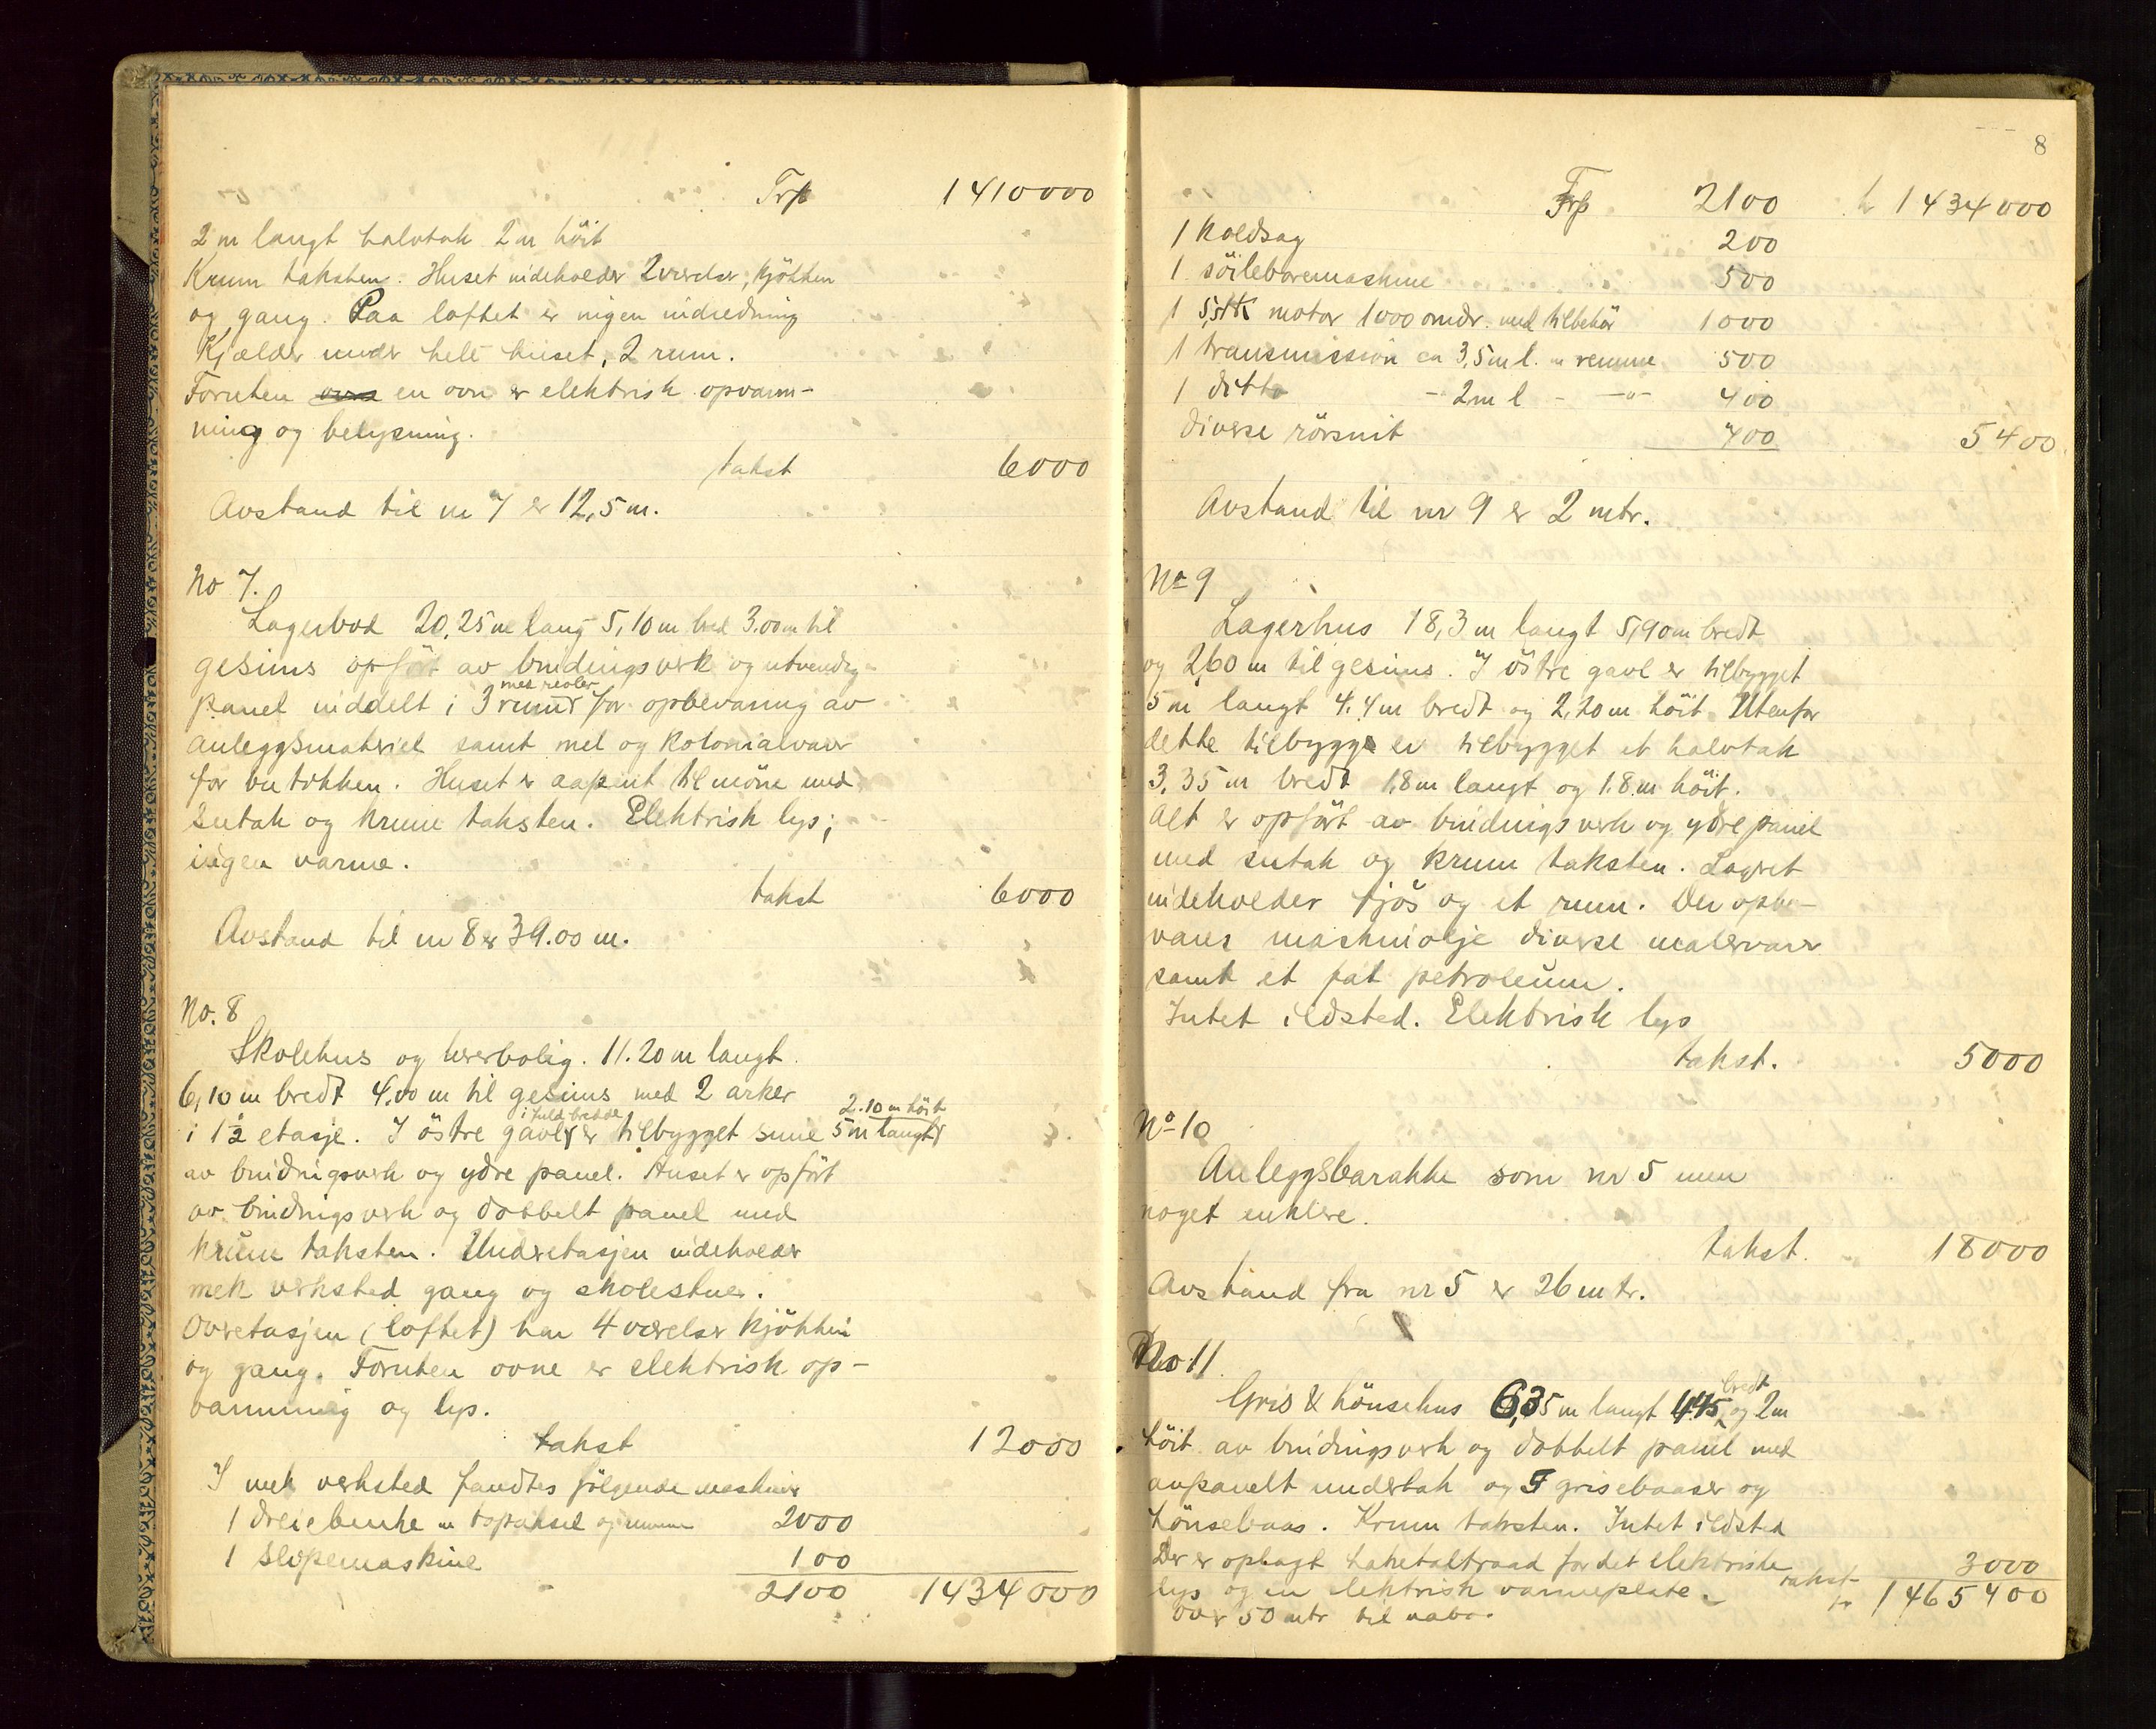 Trp 1410000
2 m langt halvtak 2 m höit
Krum taksten. Huset indeholder 2 værelser, kjökken
og gang. Paa loftet er ingen indredning
Kjælder under helt huset, 2 rum.
Foruten en ovn er elektrisk opvarm-
ning og belysning.
takst 6000
Avstand til nr 7 er 12,5 m.
No 7.
Lagerbod 20,25 m lang 5,10 m bred 3.00 m til
gesims opfört av bindingsverk og utvendig
panel inddelt i 3 rum med reoler for opbevaring av
anleggsmateriel samt mel og kolonialvarer
for butikken. Huset er aapent til möne med
sutak og krum taksten. Elektrisk lys;
ingen varme.
takst 6000
Avstand til nr 8 er 39.00 m.
No. 8
Skolehus og lærerbolig. 11.20 m langt
6,10 m bredt 4,00 m til gesims med 2 arker
i 1½ etasje. I östre gavl i fuld bredde er tilbygget 5 m langt 2.10 m höit
av bindingsverk og ydre panel. Huset er opfört
av bindingsverk og dobbelt panel med
krum taksten. Underetasjen indeholder
mek verksted gang og skolestue.
Overetasjen (loftet) har 4 værelser kjökken
og gang. Foruten ovne er elektrisk op-
varmning og lys.
takst 12000
I mek verksted fandtes fölgende maskiner
1 dreiebenke m topaksel og remme 2000
1 slipemaskine 100
2100 1434000
8
Trp 2100 kr 1434000
1 Koldsag 200
1 söileboremaskine 500
1 5,5 HK motor 1000 omdr. med tilbehör 1000
1 transmission ca 3,5 m l. m remme 500
1 ditto - 2 m l - -"- 400
diverse rörsnit 700 5400
Avstand til nr 9 er 2 mtr.
No 9
Lagerhus 18,3 m langt 5,90 m bredt
og 2,60 m til gesims. I östre gavl er tilbygget
5 m langt 4.4 m bredt og 2,20 m höit. Utenfor
dette tilbygg er tilbygget et halvtak
3,35 m bredt 1,8 m langt og 1.8 m höit.
Alt er opfört av bindingsverk og ydre panel
med sutak og krum taksten. Lagret
indeholder fjös og et rum. Der opbe-
vares maskinolje diverse malervarer
samt et fat petroleum.
Intet ildsted. Elektrisk lys
takst. 5000
No 10
Anleggsbarakke som nr 5 men
noget enklere.
takst. 18000
Avstand fra nr 5 er 26 mtr.
No 11
Gris & hönsehus 6,35 m langt 4.45 bredt og 2 m
höit av bindingsverk og dobbelt panel med
anpanelt undertak og grisebaaser og
hönsebaas. Krum taksten. Intet ildsted
Der er oplagt traad for det elektriske 3000
lys og en elektrisk varmeplate. takst
kr 1465400
over 50 mtr til nabo.